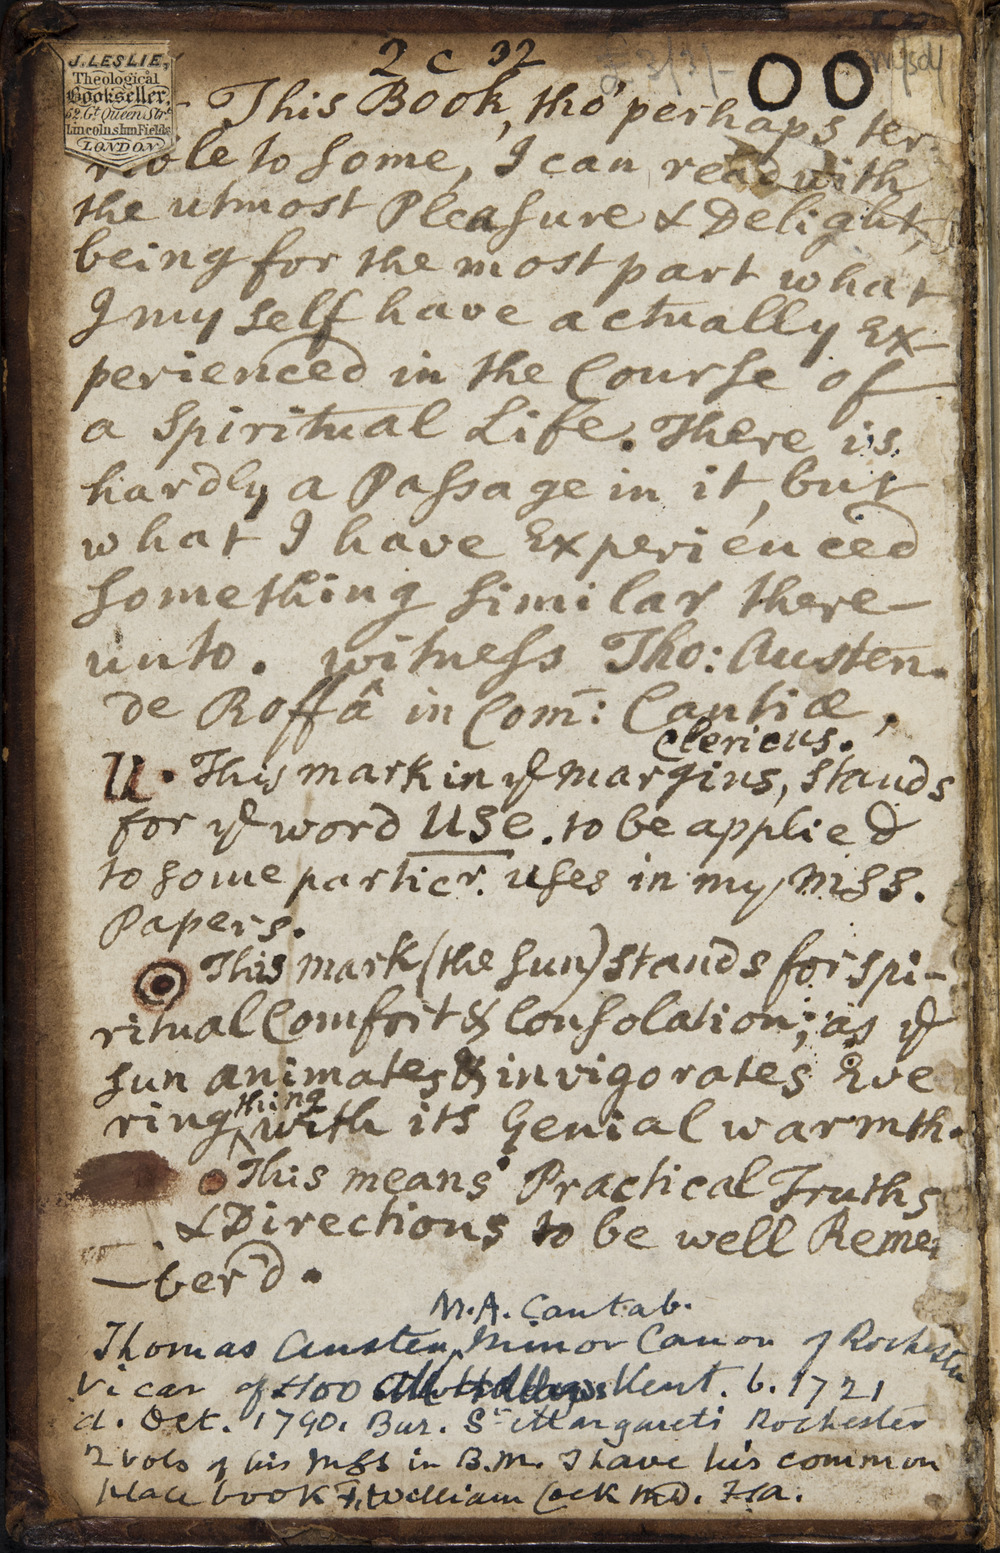 2 c 32
£3/3/-
J. LESLIE,
Theological
Bookseller,
62. Gt Queen Strt
Lincolns Inn Fields
LONDON
This Book, tho' perhaps ter-
rible to some, I can read with
the utmost Pleasure & Delight,
being for the most part what
I my self have actually Ex-
perienced in the Course of
a Spiritual Life. There is
hardly a Passage in it, but
what I have Experienced
something similar there-
unto. witness Tho: Austen.
de Roffâ in Com̄: Cantiæ,
Clericus.
U. This mark in ye margins, stands
for ye word USe. to be applied
to some particr. uses in my MSS.
Papers.
This mark (the sun) stands for spi-
ritual Comfort & Consolation; as ye
sun animates & invigorates Eve
ring thing with its Genial warmth.
This means Practical Truths
& Directions to be well Remem
-ber'd.
M.A. Cantab.
Thomas Austen, Minor Canon of Rochester
Vicar of Hoo Kent. b. 1721
d. Oct. 1790. Bur. St Margareti Rochester
2 vols of his MSS in B.M. I have his common
place book F. William Cock M.D.